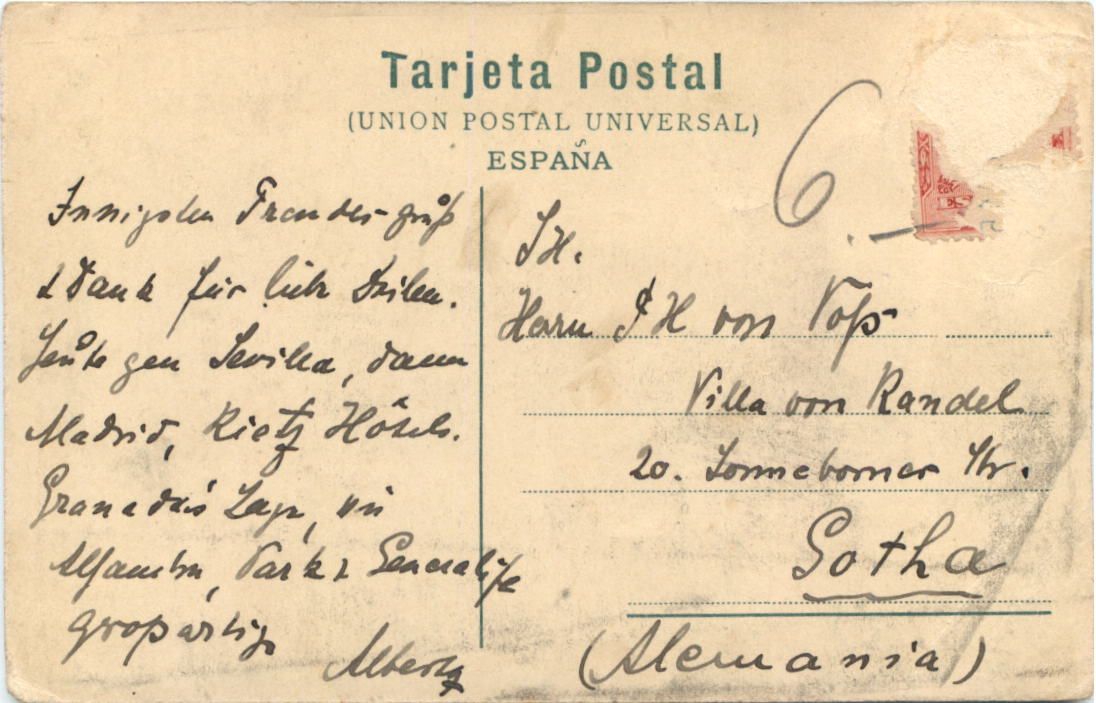 Tarjeta Postal
(UNION POSTAL UNIVERSAL)
ESPAÑA
6.–
Innigsten Freundesgruß
& Dank für liebe Zeilen.
Heute gen Sevilla, dann
Madrid, Rietz Hôtels.
Granada's Lage, wie
Alhambra, Park & Generalife
großartig
Albert
Herrn J H von Voß
Villa von Randel
20. Sonneborner Str.
Gotha
(Alemania)